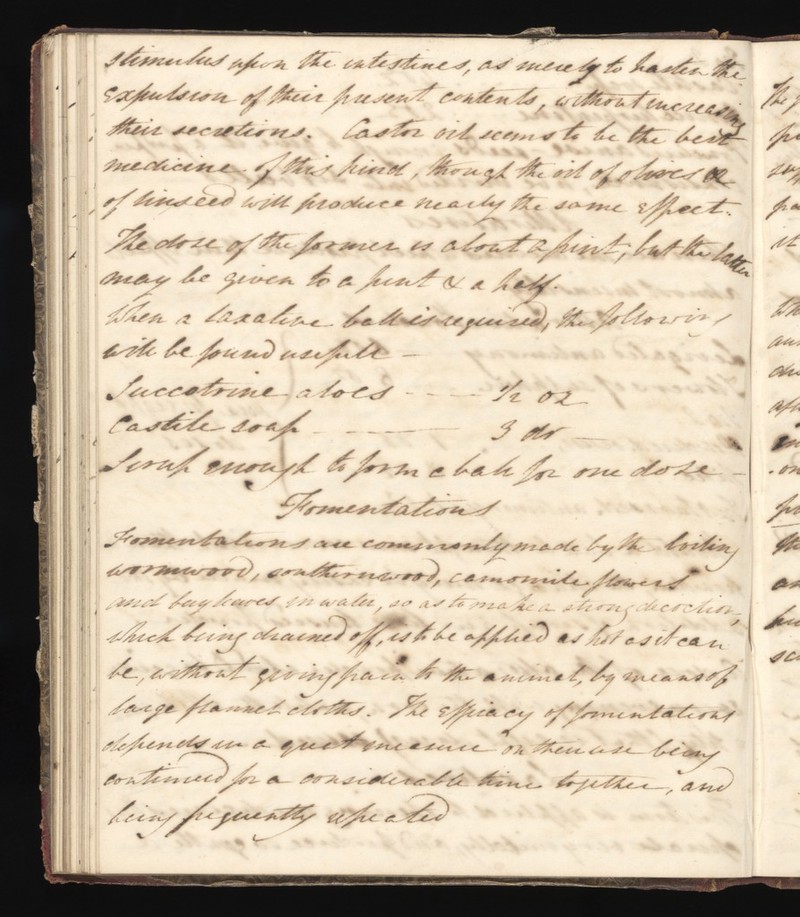 stimulus upon the intestines, as merely to hasten the
expulsion of their present contents, without increasing
their secretions. Castor oil seems to be the best
medicine of this kind, though the oil of olives or
of linseed will produce nearly the same effect.
The dose of the former is about a pint, but the latter
may be given to a pint & a half.
When a laxative ball is required, the following
will be found usefull —
Succotrine aloes - - - - 1/2 oz
Castile soap ——— 3 dr —
Sirup enough to form a ball for one dose —
Fomentations
Fomentations are commonly made by the boiling
wormwood, southernwood, camomile flowers
and bay leaves in water, so as to make a strong decoction,
which being drained off, is to be applied as hot as it can
be, without giving pain to the animal, by means of
large flannel cloths. The efficacy of fomentations
depends in a great measure on their use being
continued for a considerable time together, and
being frequently repeated